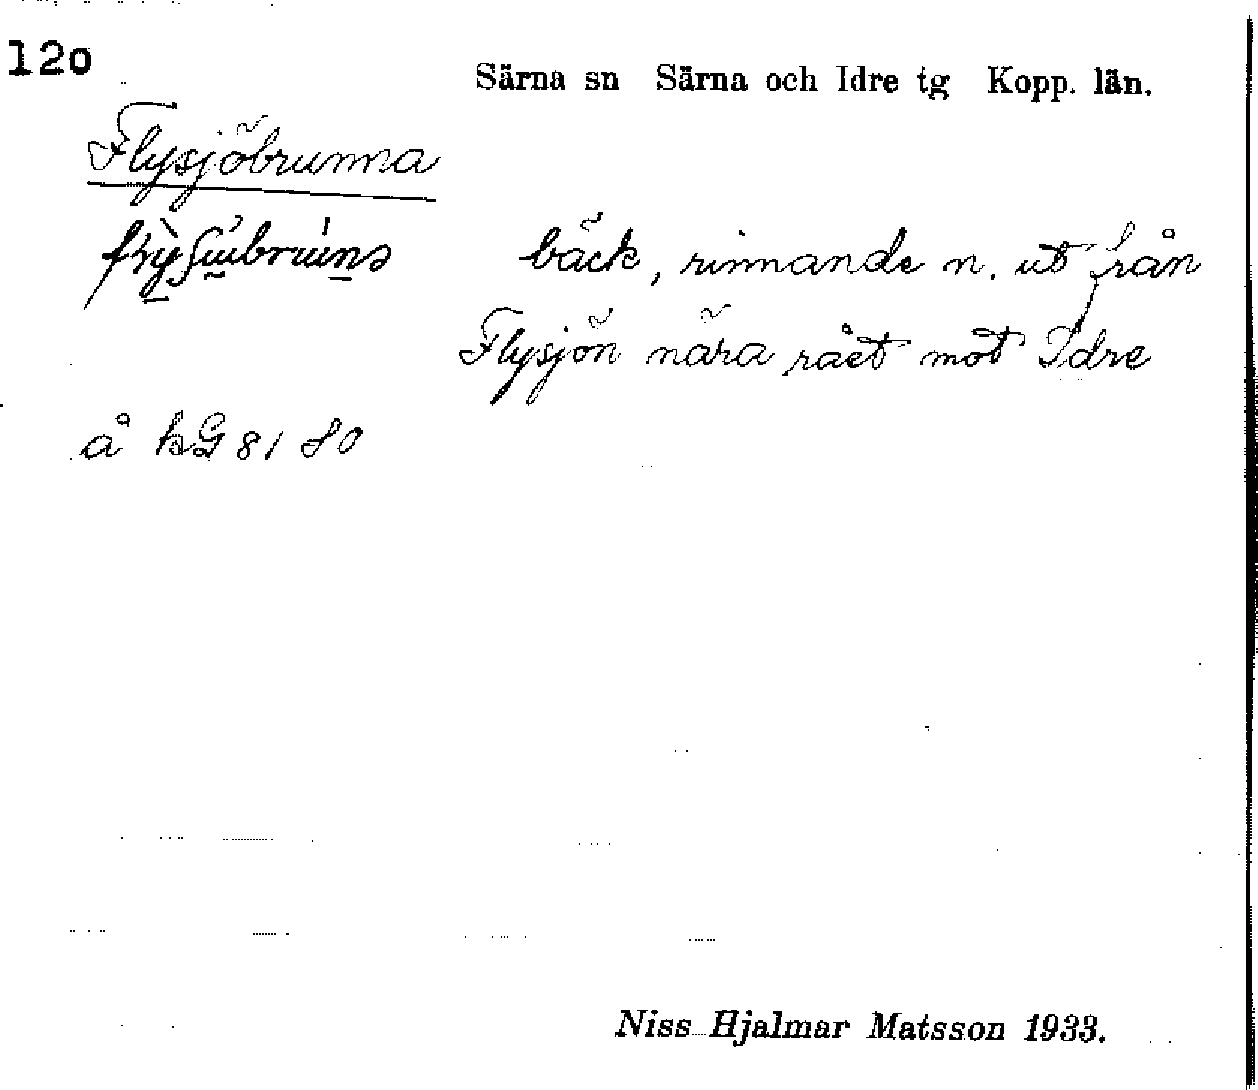 12o
Särna sn Särna och Idre tg Kopp. län.
Flysjöbrunna
bäck, rinnande n. ut från
Flysjön nära rået mot Idre
å kG 81 80
Niss Hjalmar Matsson 1933.